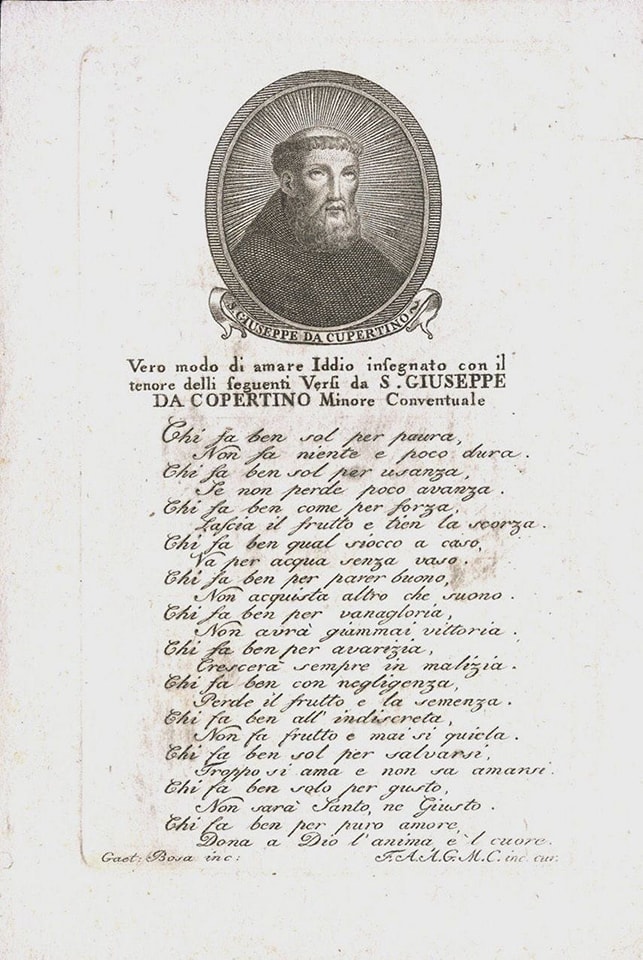 S. GIUSEPPE DA CUPERTINO
Vero modo di amare Iddio inſegnato con il
tenore delli ſeguenti Verſi da S. GIUSEPPE
DA COPERTINO Minore Conventuale
Chi fa ben sol per paura,
Non fa niente e poco dura.
Chi fa ben sol per usanza,
Se non perde poco avanza.
Chi fa ben come per forza,
Lascia il frutto e tien la scorza.
Chi fa ben qual siocco a caso,
Va per acqua senza vaso.
Chi fa ben per parer buono,
Non acquista altro che suono.
Chi fa ben per vanagloria,
Non avrà giammai vittoria.
Chi fa ben per avarizia,
Crescerà sempre in malizia.
Chi fa ben con negligenza,
Perde il frutto e la semenza.
Chi fa ben all' indiscreta,
Non fa frutto e mai si quieta.
Chi fa ben sol per salvarsi,
Troppo si ama e non sa amarsi.
Chi fa ben solo per gusto,
Non sarà Santo, ne Giusto.
Chi fa ben per puro amore,
Dona a Dio l'anima è'l cuore.
Gaet: Bosa inc:
F.A.A.G.M.C. inc. cur.